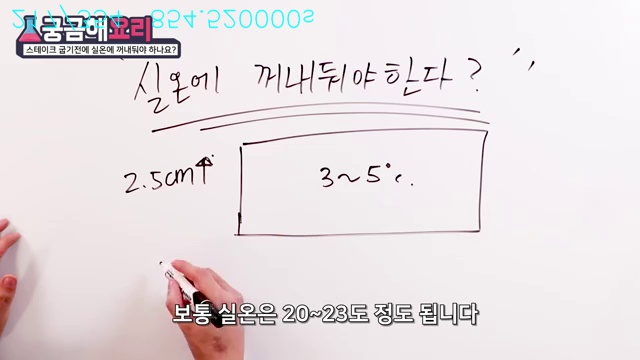 궁금해요리
스테이크 굽기전에 실온에 꺼내둬야 하나요?
실온에 꺼내둬야한다?
2.5cm↑
3~5℃.
보통 실온은 20~23도 정도 됩니다